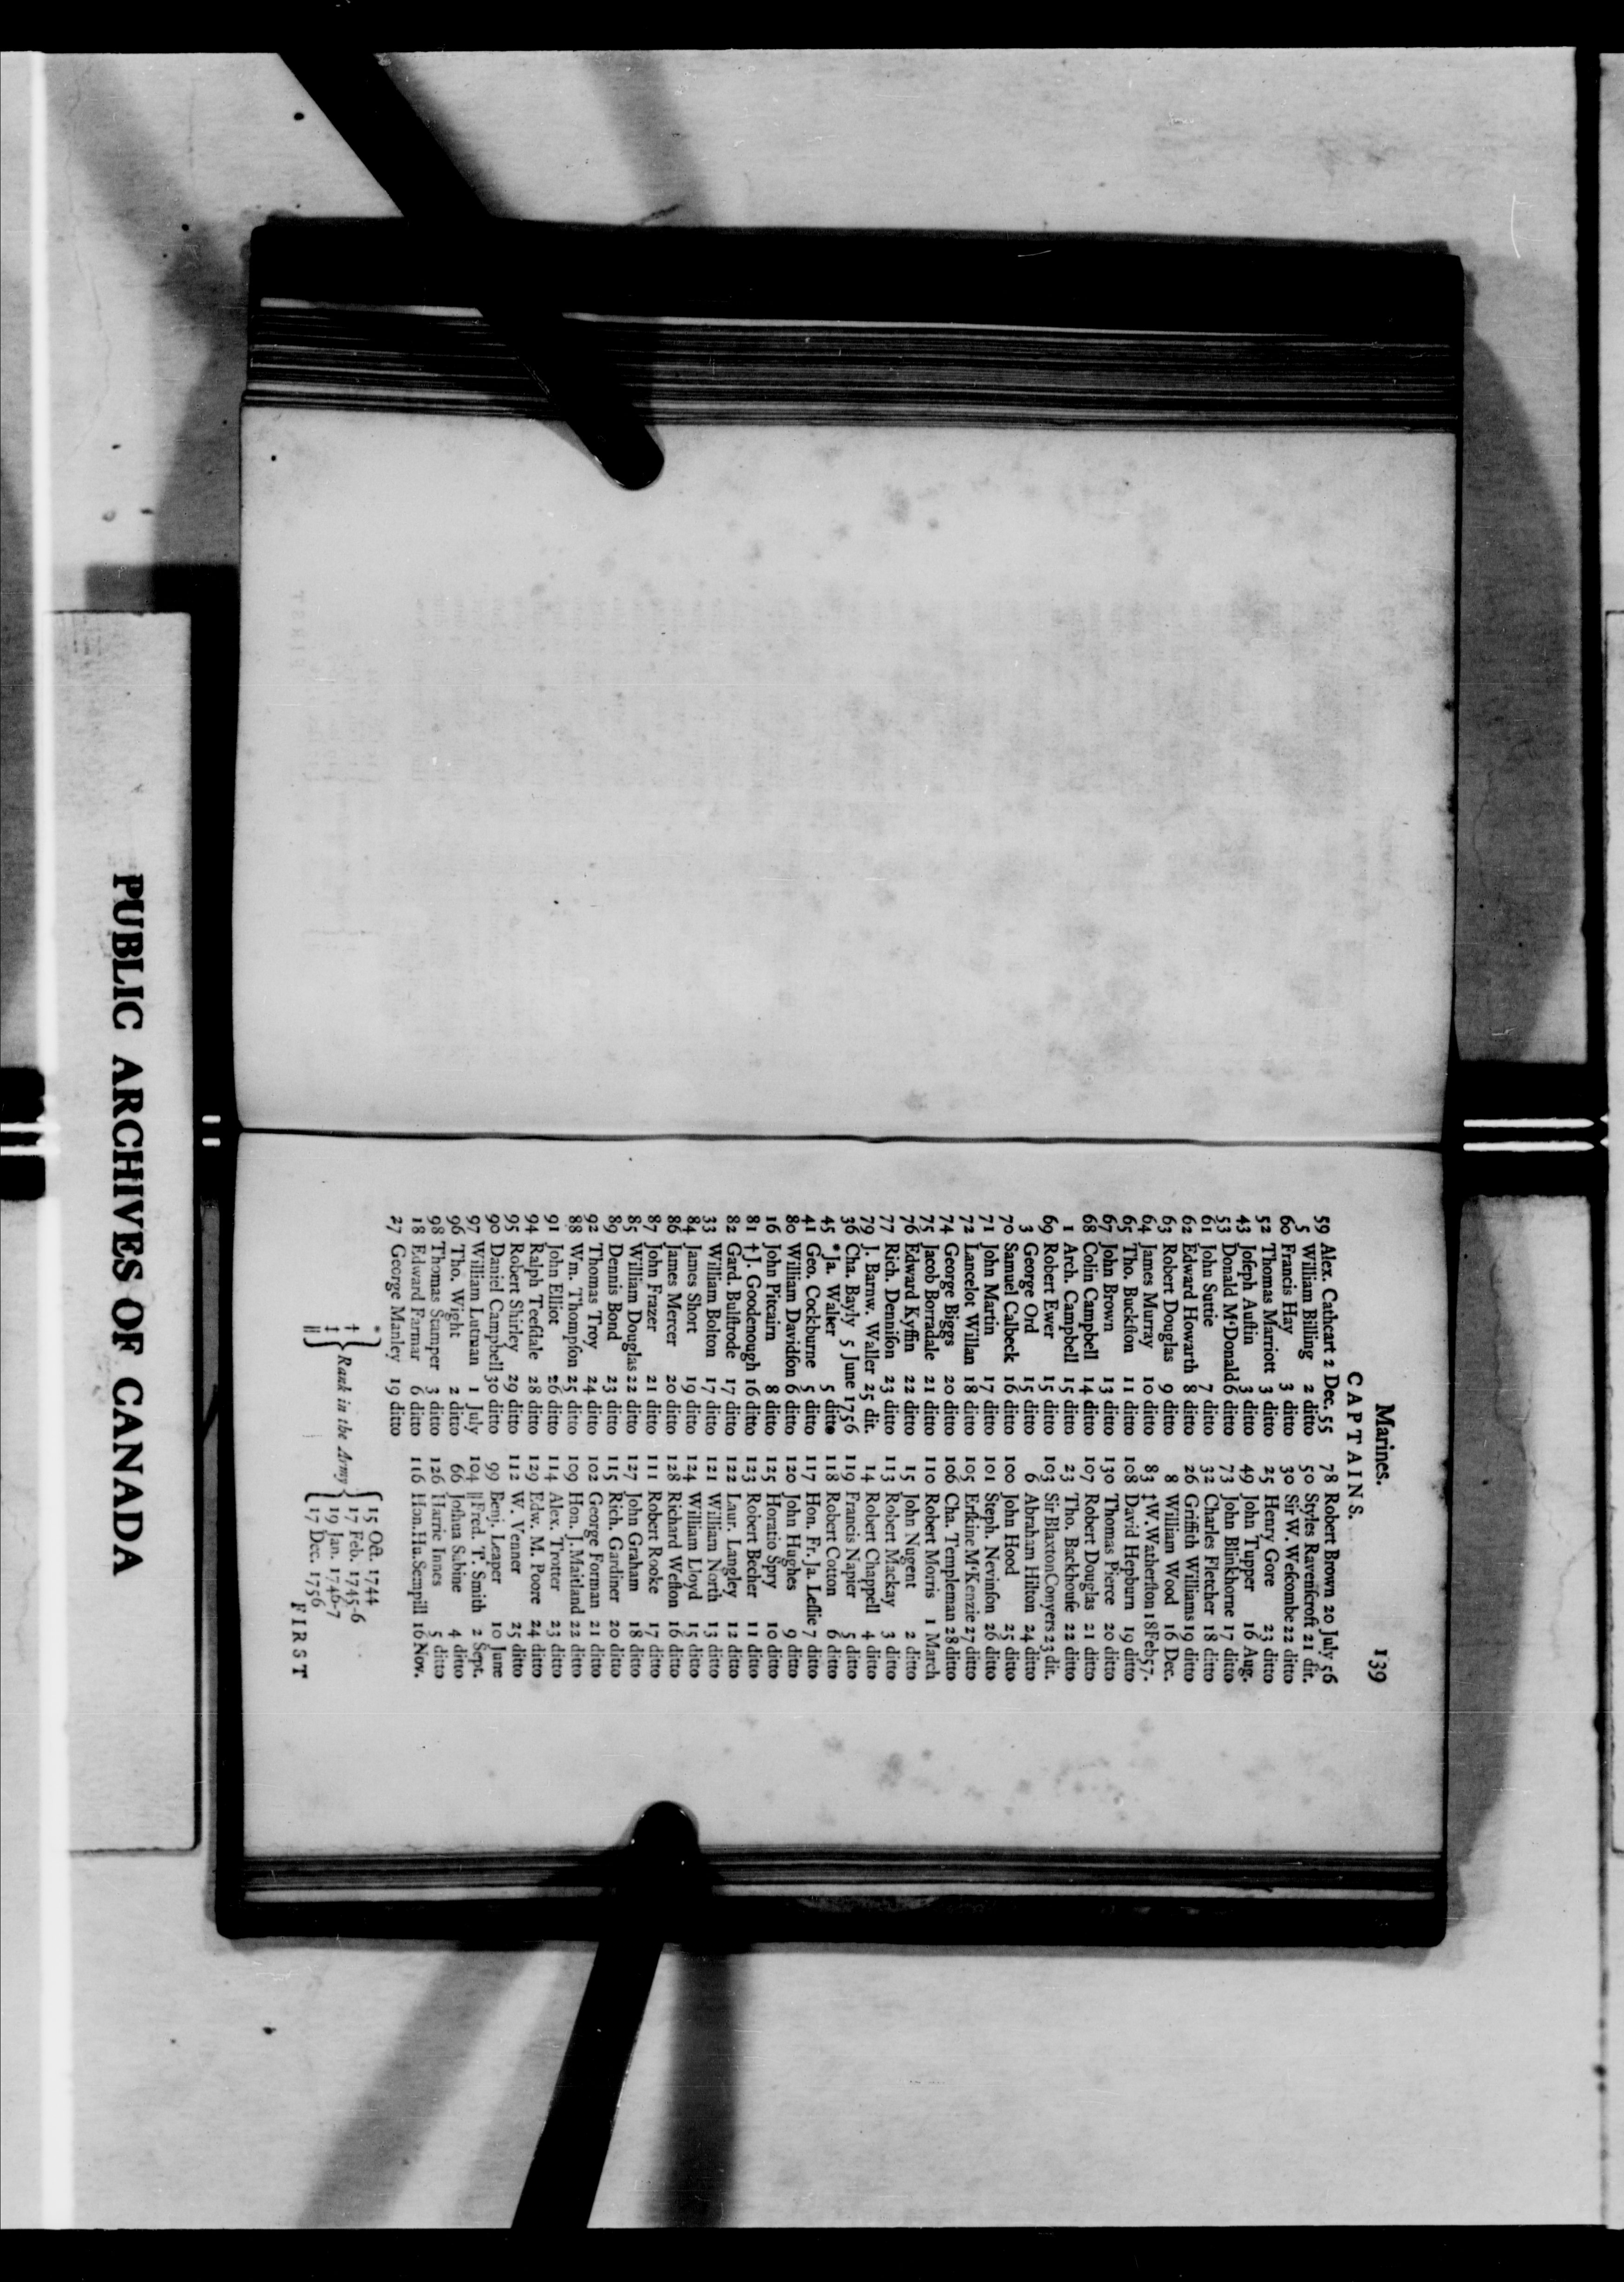 Marines. 139
CAPTAINS.
59 Alex. Cathcart 2 Dec. 55
5 William Billing 2 ditto
60 Francis Hay 3 ditto
52 Thomas Marriott 3 ditto
43 Joſeph Auſtin 3 ditto
53 Donald M'Donald 6 ditto
61 John Suttie 7 ditto
62 Edward Howarth 8 ditto
63 Robert Douglas 9 ditto
64 James Murray 10 ditto
65 Tho. Buckſton 11 ditto
67 John Brown 13 ditto
68 Colin Campbell 14 ditto
1 Arch. Campbell 15 ditto
69 Robert Ewer 15 ditto
3 George Ord 15 ditto
70 Samuel Calbeck 16 ditto
71 John Martin 17 ditto
72 Lancelot Willan 18 ditto
74 George Biggs 20 ditto
75 Jacob Borradale 21 ditto
76 Edward Kyffin 22 ditto
77 Rich. Denniſon 23 ditto
79 J. Barnw. Waller 25 dit.
36 Cha. Bayly 5 June 1756
45 * Ja. Walker 5 ditto
41 Geo. Cockburne 5 ditto
80 William Davidſon 6 ditto
16 John Pitcairn 8 ditto
81 † J. Goodenough 16 ditto
82 Gard. Bulſtrode 17 ditto
33 William Bolton 17 ditto
84 James Short 19 ditto
86 James Mercer 20 ditto
87 John Frazer 21 ditto
85 William Douglas 22 ditto
89 Dennis Bond 23 ditto
92 Thomas Troy 24 ditto
88 Wm. Thompſon 25 ditto
91 John Elliot 26 ditto
94 Ralph Teeſdale 28 ditto
95 Robert Shirley 29 ditto
90 Daniel Campbell 30 ditto
97 William Lutman 1 July
96 Tho. Wight 2 ditto
98 Thomas Stamper 3 ditto
18 Edward Farmar 6 ditto
27 George Manley 19 ditto
78 Robert Brown 20 July 56
50 Styles Ravenſcroft 21 dit.
30 Sir W. Weſcombe 22 ditto
25 Henry Gore 23 ditto
49 John Tupper 16 Aug.
73 John Blinkhorne 17 ditto
32 Charles Fletcher 18 ditto
26 Griffith Williams 19 ditto
8 William Wood 16 Dec.
83 ‡ W. Watherſton 18 Feb 57.
108 David Hepburn 19 ditto
130 Thomas Pierce 20 ditto
107 Robert Douglas 21 ditto
23 Tho. Backhouſe 22 ditto
103 Sir Blaxton Conyers 23 dit.
6 Abraham Hilton 24 ditto
100 John Hood 25 ditto
101 Steph. Nevinſon 26 ditto
105 Erſkine M'Kenzie 27 ditto
106 Cha. Templeman 28 ditto
110 Robert Morris 1 March
15 John Nugent 2 ditto
113 Robert Mackay 3 ditto
14 Robert Chappell 4 ditto
119 Francis Napier 5 ditto
118 Robert Cotton 6 ditto
117 Hon. Fr. Ja. Leſlie 7 ditto
120 John Hughes 9 ditto
125 Horatio Spry 10 ditto
123 Robert Becher 11 ditto
122 Laur. Langley 12 ditto
121 William North 13 ditto
124 William Lloyd 15 ditto
128 Richard Weſton 16 ditto
111 Robert Rooke 17 ditto
127 John Graham 18 ditto
115 Rich. Gardiner 20 ditto
102 George Forman 21 ditto
109 Hon. J. Maitland 22 ditto
114 Alex. Trotter 23 ditto
129 Edw. M. Poore 24 ditto
112 W. Venner 25 ditto
99 Benj. Leaper 10 June
104 || Fred. T. Smith 2 Sept.
66 Joſhua Sabine 4 ditto
126 Harrie Innes 5 ditto
116 Hon. Hu. Sempill 16 Nov.
* † ‡ || } Rank in the Army {
15 Oct. 1744
17 Feb. 1745-6
19 Jan. 1746-7
17 Dec. 1756
FIRST
PUBLIC ARCHIVES OF CANADA